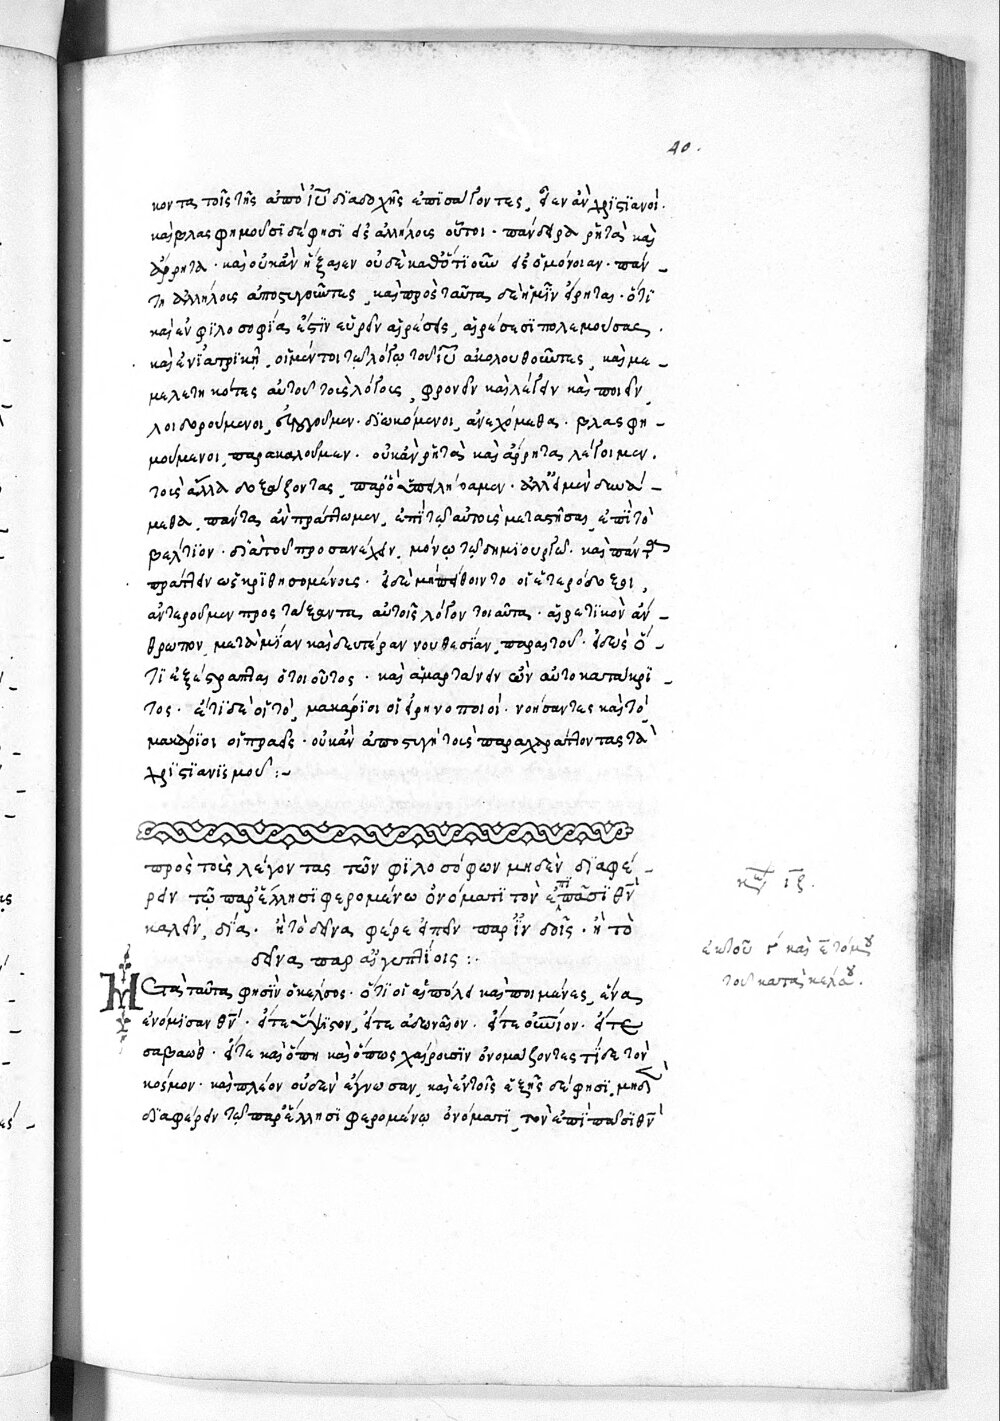 40.
κοντας τοῖς τῆς ἀπὸ ἰῦ διαδοχῆς ἐπϊσάγοντες, εἶεν ἂν χριστϊανοί.
καὶ βλασφημοῦσι δέ φησὶ εἰς ἀλλήλους οὗτοι· πάνδεινα ῥητὰ καὶ
ἄρρητα· καὶ οὐκ ἂν ἤξαιεν οὐδὲ καθοτϊοῦν εἰς ὁμόνοιαν· πάν-
τη ἀλλήλους ἀποστυγοῦντες, καὶ πρὸς ταῦτα δὲ ἡμῖν εἴρηται· ὅτι
καὶ ἐν φιλοσοφία ἐστὶν εὑρεῖν αἱρέσεις, αἱρέσεσι πολεμούσας.
καὶ ἐν ἰατρϊκῇ, οἱ μέντοι τῷ λόγῳ τοῦ ἰῦ ἀκολουθοῦντες, καὶ με
μελετηκότες αὐτοῦ τοὺς λόγους, φρονεῖν καὶ λέγειν καὶ ποιεῖν,
λοιδορούμενοι, εὐλογοῦμεν· διωκόμενοι, ἀνεχόμεθα· βλασφη-
μούμενοι, παρακαλοῦμεν· οὐκ ἂν ῥητὰ καὶ ἄρρητα λέγοιμεν.
τοὺς ἄλλα δοξάζοντας, παρ' ὃ ὑπειλήφαμεν· ἀλλ' εἰ μὲν δυνά-
μεθα, πάντα ἂν πράττωμεν, ἐπὶ τῷ αὐτοὺς μεταστῆσαι, ἐπὶ τὸ
βέλτϊον· διὰ τοῦ προσανέχειν, μόνῳ τῷ δημϊουργῷ· καὶ πάντα
πράττειν ὡς κριθησομένους· εἰ δὲ μὴ πείθοιντο οἱ ἑτερόδοξοι,
ἀντεροῦμεν πρὸς τάξαντα αὐτοῖς λόγον τοιαῦτα· αἱρετϊκὸν ἄν-
θρωπον, μετὰ μίαν καὶ δευτέραν νουθεσίαν, παραιτοῦ· εἰδὼς ὅ-
τι ἐξέστραπται ὁ τοιοῦτος· καὶ ἁμαρτάνει ὢν αὐτοκατάκρι-
τος· ἔτι δὲ οἱ τό, μακάριοι οἱ εἰρηνοποιοί· νοήσαντες καὶ τό
μακάριοι οἱ πραεῖς· οὐκ ἂν ἀποστυγῆ τοὺς παραχαράττοντας τὰ
χριστϊανϊσμοῦ:-
πρὸς τοὺς λέγοντας τῶν φϊλοσόφων μηδὲν διαφέ-
ρειν τῷ παρ' ἕλλησι φερομένω ὀνόματι τὸν ἐπὶ πᾶσϊ θν̄
καλεῖν, δία· ἢ τὸ δεῖνα φέρε εἰπεῖν παρ' ἰνδοῖς· ἢ τὸ
δεῖνα παρ' αἰγυπτίοις:·
κεφ ιζ.
ἐκ τοῦ αʹ καὶ εʹ τόμου
τοῦ κατὰ κέλσου.
Μετὰ ταῦτα φησὶν ὁ κέλσος· ὅτι οἱ αἰπόλοι καὶ ποιμένες, ἕνα
ἐνόμισαν θν̄· εἴτε ὕψιστον, εἴτε ἀδωναῖον· εἴτε οὐράνιον· εἴτε
σαβαώθ· εἴτε καὶ ὅπη καὶ ὅπως χαίρουσϊν ὀνομάζοντες τόνδε τὸν
κόσμον· καὶ πλεῖον οὐδὲν ἔγνωσαν, καὶ ἐν τοῖς ἑξῆς δέ φησϊ, μηδὲν
διαφέρειν τῷ παρ' ἕλλησι φερομένῳ ὀνόματϊ, τὸν ἐπὶ πᾶσι θν̄